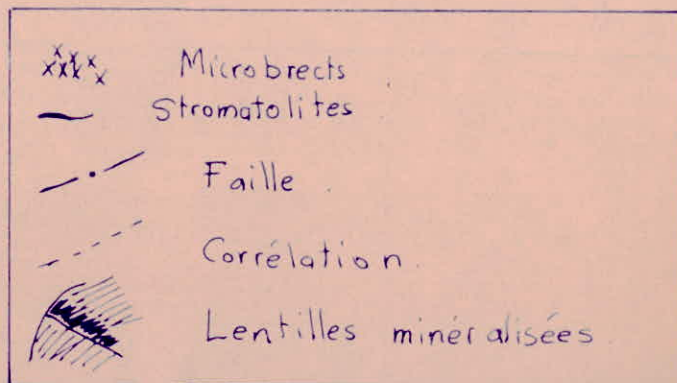 Microbrects
Stromatolites
Faille
Corrélation
Lentilles minéralisées